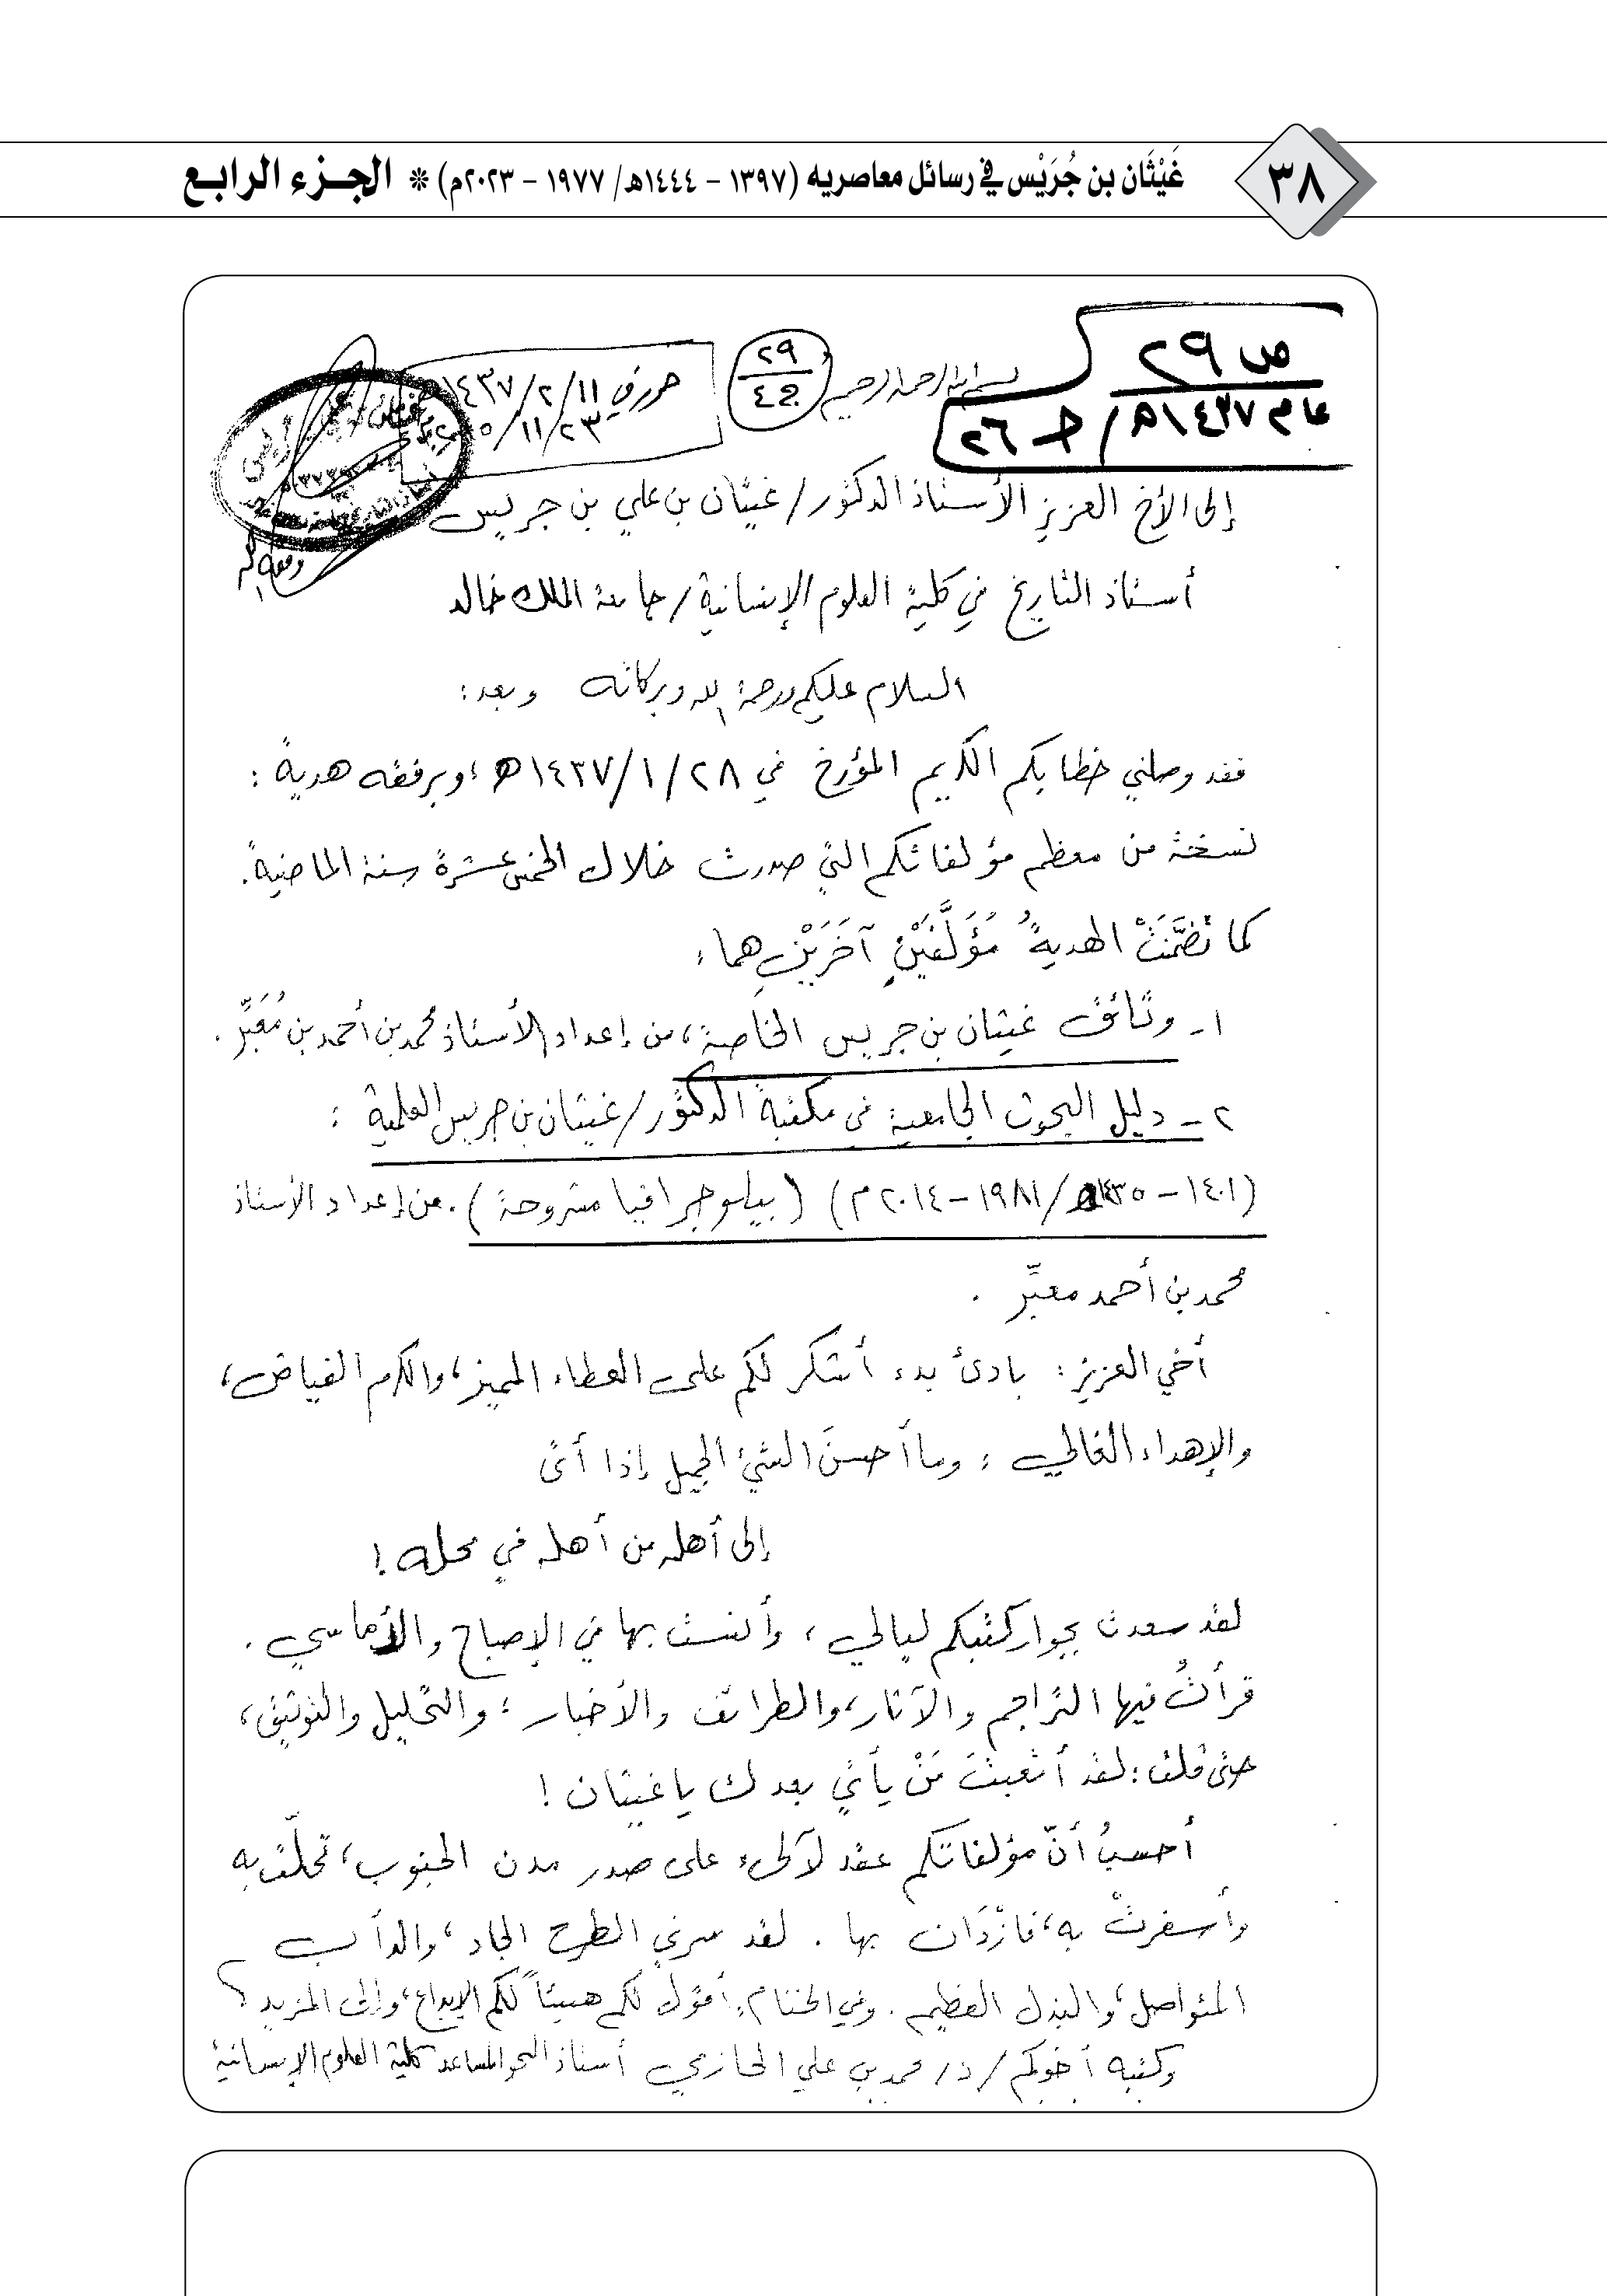 ٣٨
غَيْثَان بن جُرَيْس في رسائل معاصريه (١٣٩٧ - ١٤٤٤هـ/ ١٩٧٧ - ٢٠٢٣م) * الجزء الرابع
ص ٢٩
عام ١٤٣٧هـ / ج ٢٦
بسم الله الرحمن الرحيم
٢٩
ج٤
حرر في ١١/ ٢/ ١٤٣٧
٢٣/ ١١/
إلى الأخ العزيز الأستاذ الدكتور/ غيثان بن علي بن جريس
أستاذ التاريخ في كلية العلوم الإنسانية/ جامعة الملك خالد
السلام عليكم ورحمة الله وبركاته وبعد:
فقد وصلني خطابكم الكريم المؤرخ في ٢٨/ ١/ ١٤٣٧هـ، وبرفقه هدية:
نسخة من معظم مؤلفاتكم التي صدرت خلال الخمس عشرة سنة الماضية.
كما تضمَّنَتْ الهديةُ مُؤَلَّفَيْنِ آخَرَيْنِ هما:
١- وثائق غيثان بن جريس الخاصة، من إعداد الأستاذ محمد بن أحمد بن مُعَبِّر.
٢- دليل البحوث الجامعية في مكتبة الدكتور/ غيثان بن جريس العلمية:
(١٤٠١- ١٤٣٥هـ/ ١٩٨١- ٢٠١٤م) (ببلوجرافيا مشروحة). من إعداد الأستاذ
محمد بن أحمد معبِّر.
أخي العزيز: بادئ بدء أشكر لكم على العطاء المميز، والكرم الفياض،
والإهداء الغالي: وما أحسنَ الشيئ الجميل إذا أتى
إلى أهله من أهله في محله!
لقد سعدت بجوار كتبكم ليالي، وأنست بها في الإصباح والأماسي.
قرأتُ فيها التراجم والآثار، والطرائف والأخبار؛ والتحليل والتوثيق،
حتى قلت: لقد أتعبتَ مَنْ يأتي بعدك يا غيثان!
أحسبُ أنّ مؤلفاتكم عقد لآلئ على صدر مدن الجنوب، تحلّت به
وأسفرتْ به، فازْدَان بها. لقد سرني الطرح الجاد، والدأب
المتواصل، والبذل العظيم. وفي الختام: أقول لكم هنيئاً لكم الإبداع، وإلى المزيد؟
وكتبه أخوكم/ د/ محمد بن علي الحازمي أستاذ النحو المساعد كلية العلوم الإنسانية